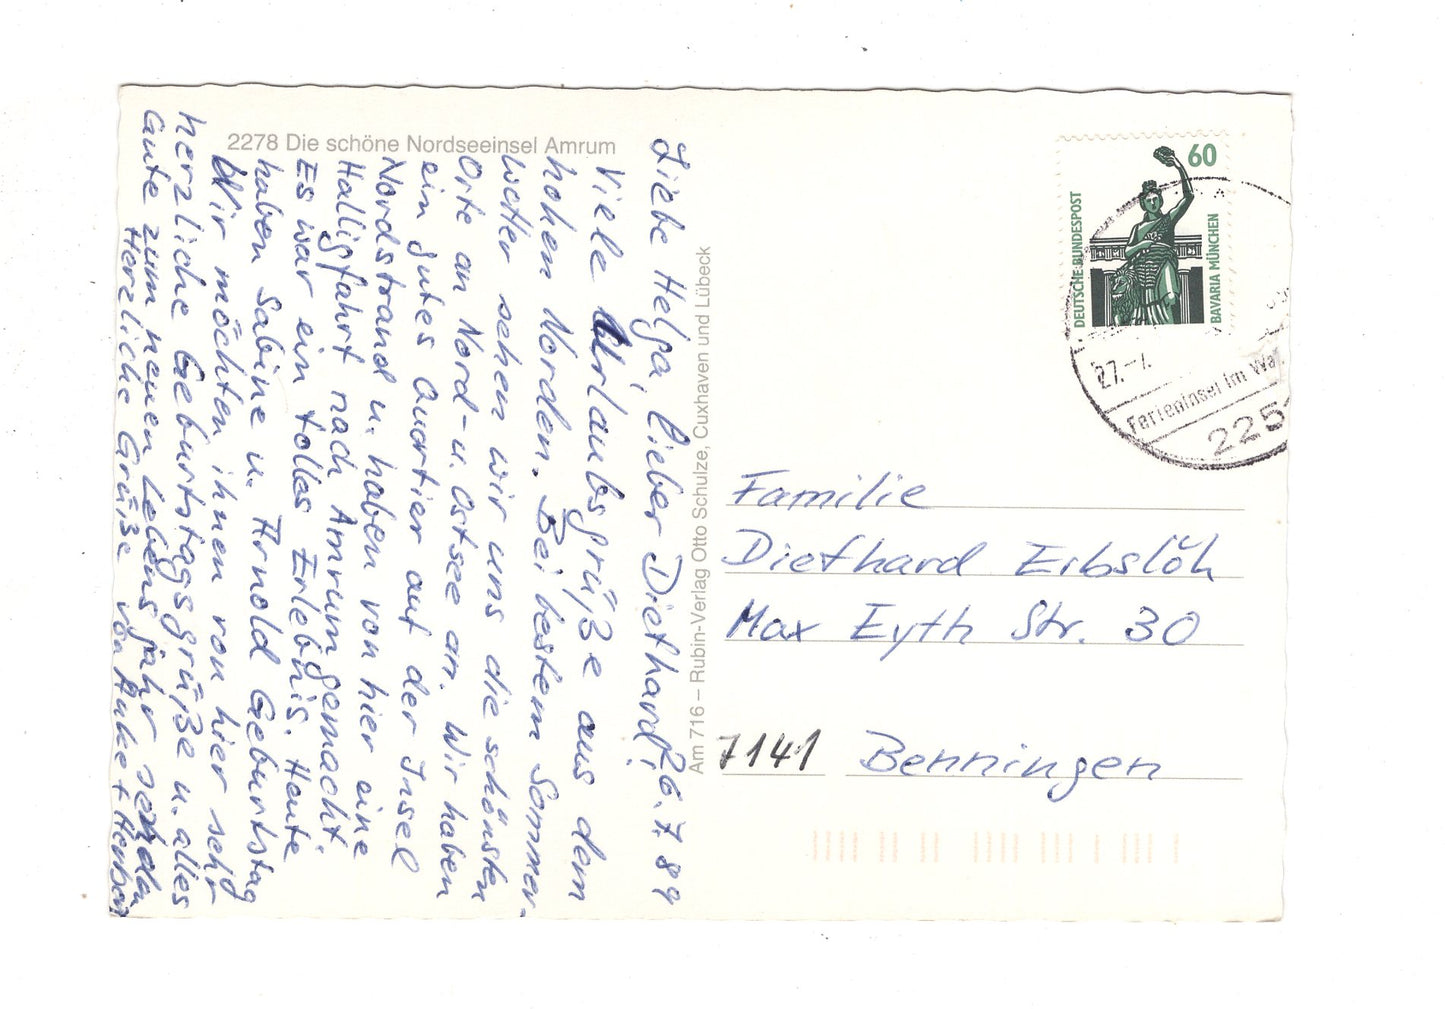 2278 Die schöne Nordseeinsel Amrum
26.7.89
Liebe Helga, lieber Diethard!
Viele Urlaubsgrüße aus dem
hohen Norden. Bei bestem Sommer-
wetter sehen wir uns die schönsten
Orte an Nord- u. Ostsee an. Wir haben
ein gutes Quartier auf der Insel
Nordstrand u. haben von hier eine
Halligfahrt nach Amrum gemacht.
Es war ein tolles Erlebnis. Heute
haben Sabine u. Arnold Geburtstag
Wir möchten ihnen von hier sehr
herzliche Geburtstagsgrüße u. alles
Gute zum neuen Lebensjahr senden
Herzliche Grüße von Anke + Herbert
Am 716 – Rubin-Verlag Otto Schulze, Cuxhaven und Lübeck
60
DEUTSCHE BUNDESPOST
BAVARIA MÜNCHEN
27.-7.
Ferieninsel im
225
Familie
Diethard Erbslöh
Max Eyth Str. 30
7141 Benningen